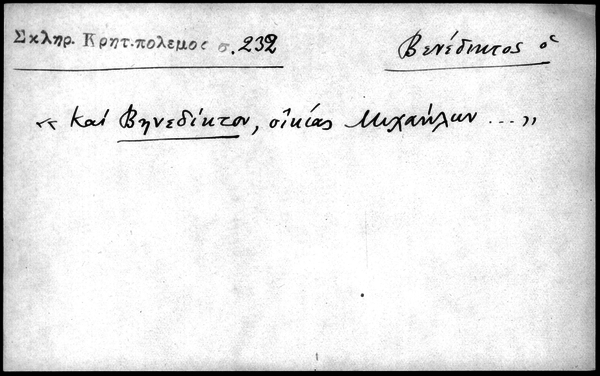 Σκληρ. Κρητ. πολεμος σ. 232
Βενέδικτος ὁ
« καί Βηνεδίκτον, οἰκίας Μιχαήλων ... »